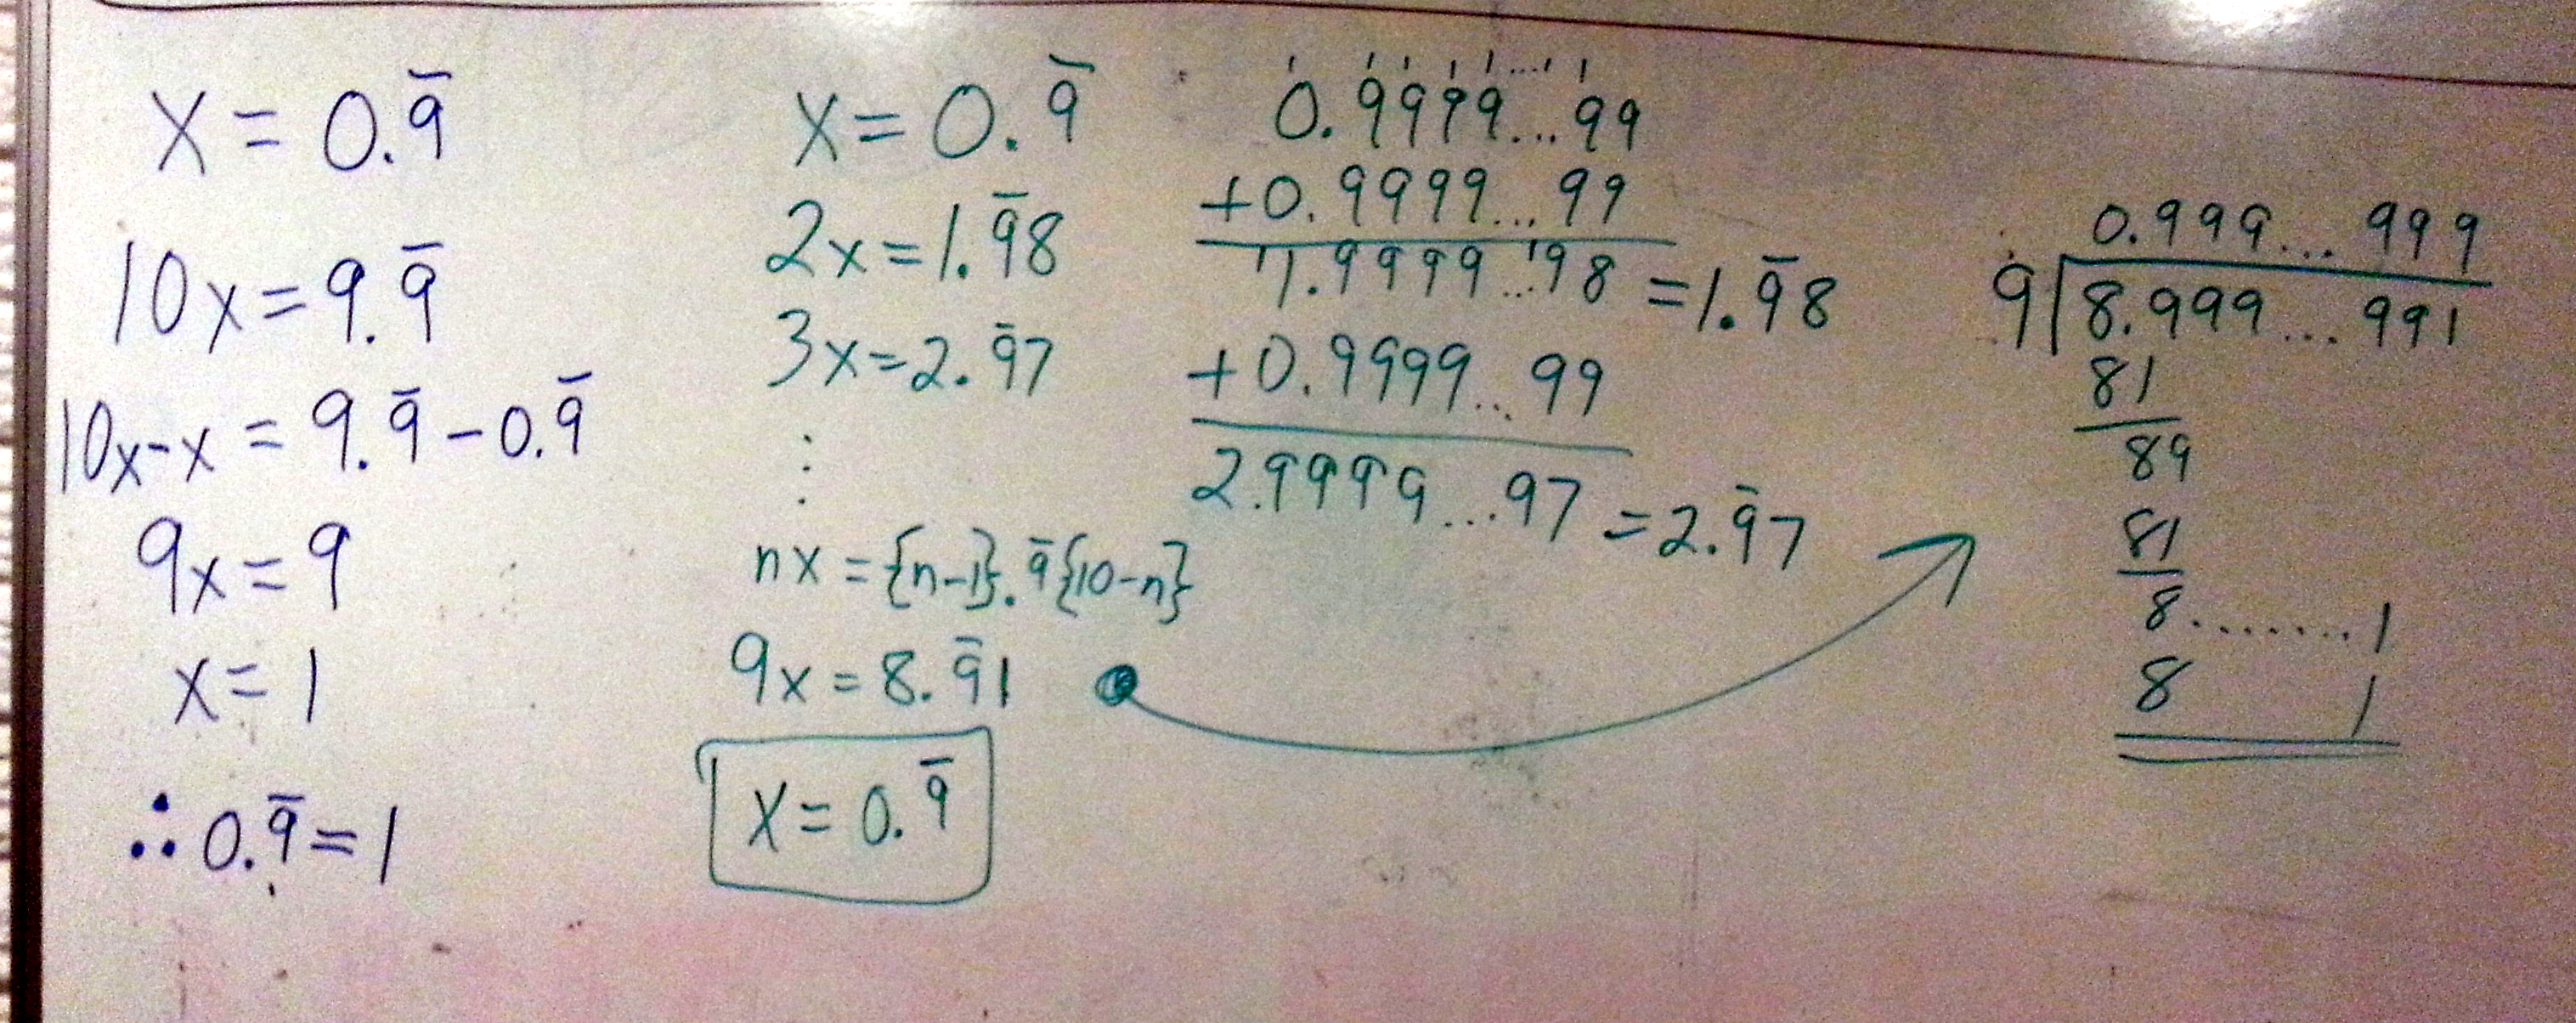 x = 0.9̅
10x = 9.9̅
10x-x = 9.9̅ - 0.9̅
9x = 9
x = 1
∴ 0.9̅ = 1
x = 0.9̅
2x = 1.9̅8
3x = 2.9̅7
⋮
nx = {n-1}.9̅{10-n}
9x = 8.9̅1
x = 0.9̅
1 1 1 1 1 ... 1 1
0.9999...99
+0.9999...99
1.9999...98 = 1.9̅8
+0.9999...99
2.9999...97 = 2.9̅7
0.999...999
9 8.999...991
81
89
81
8.......1
8 1